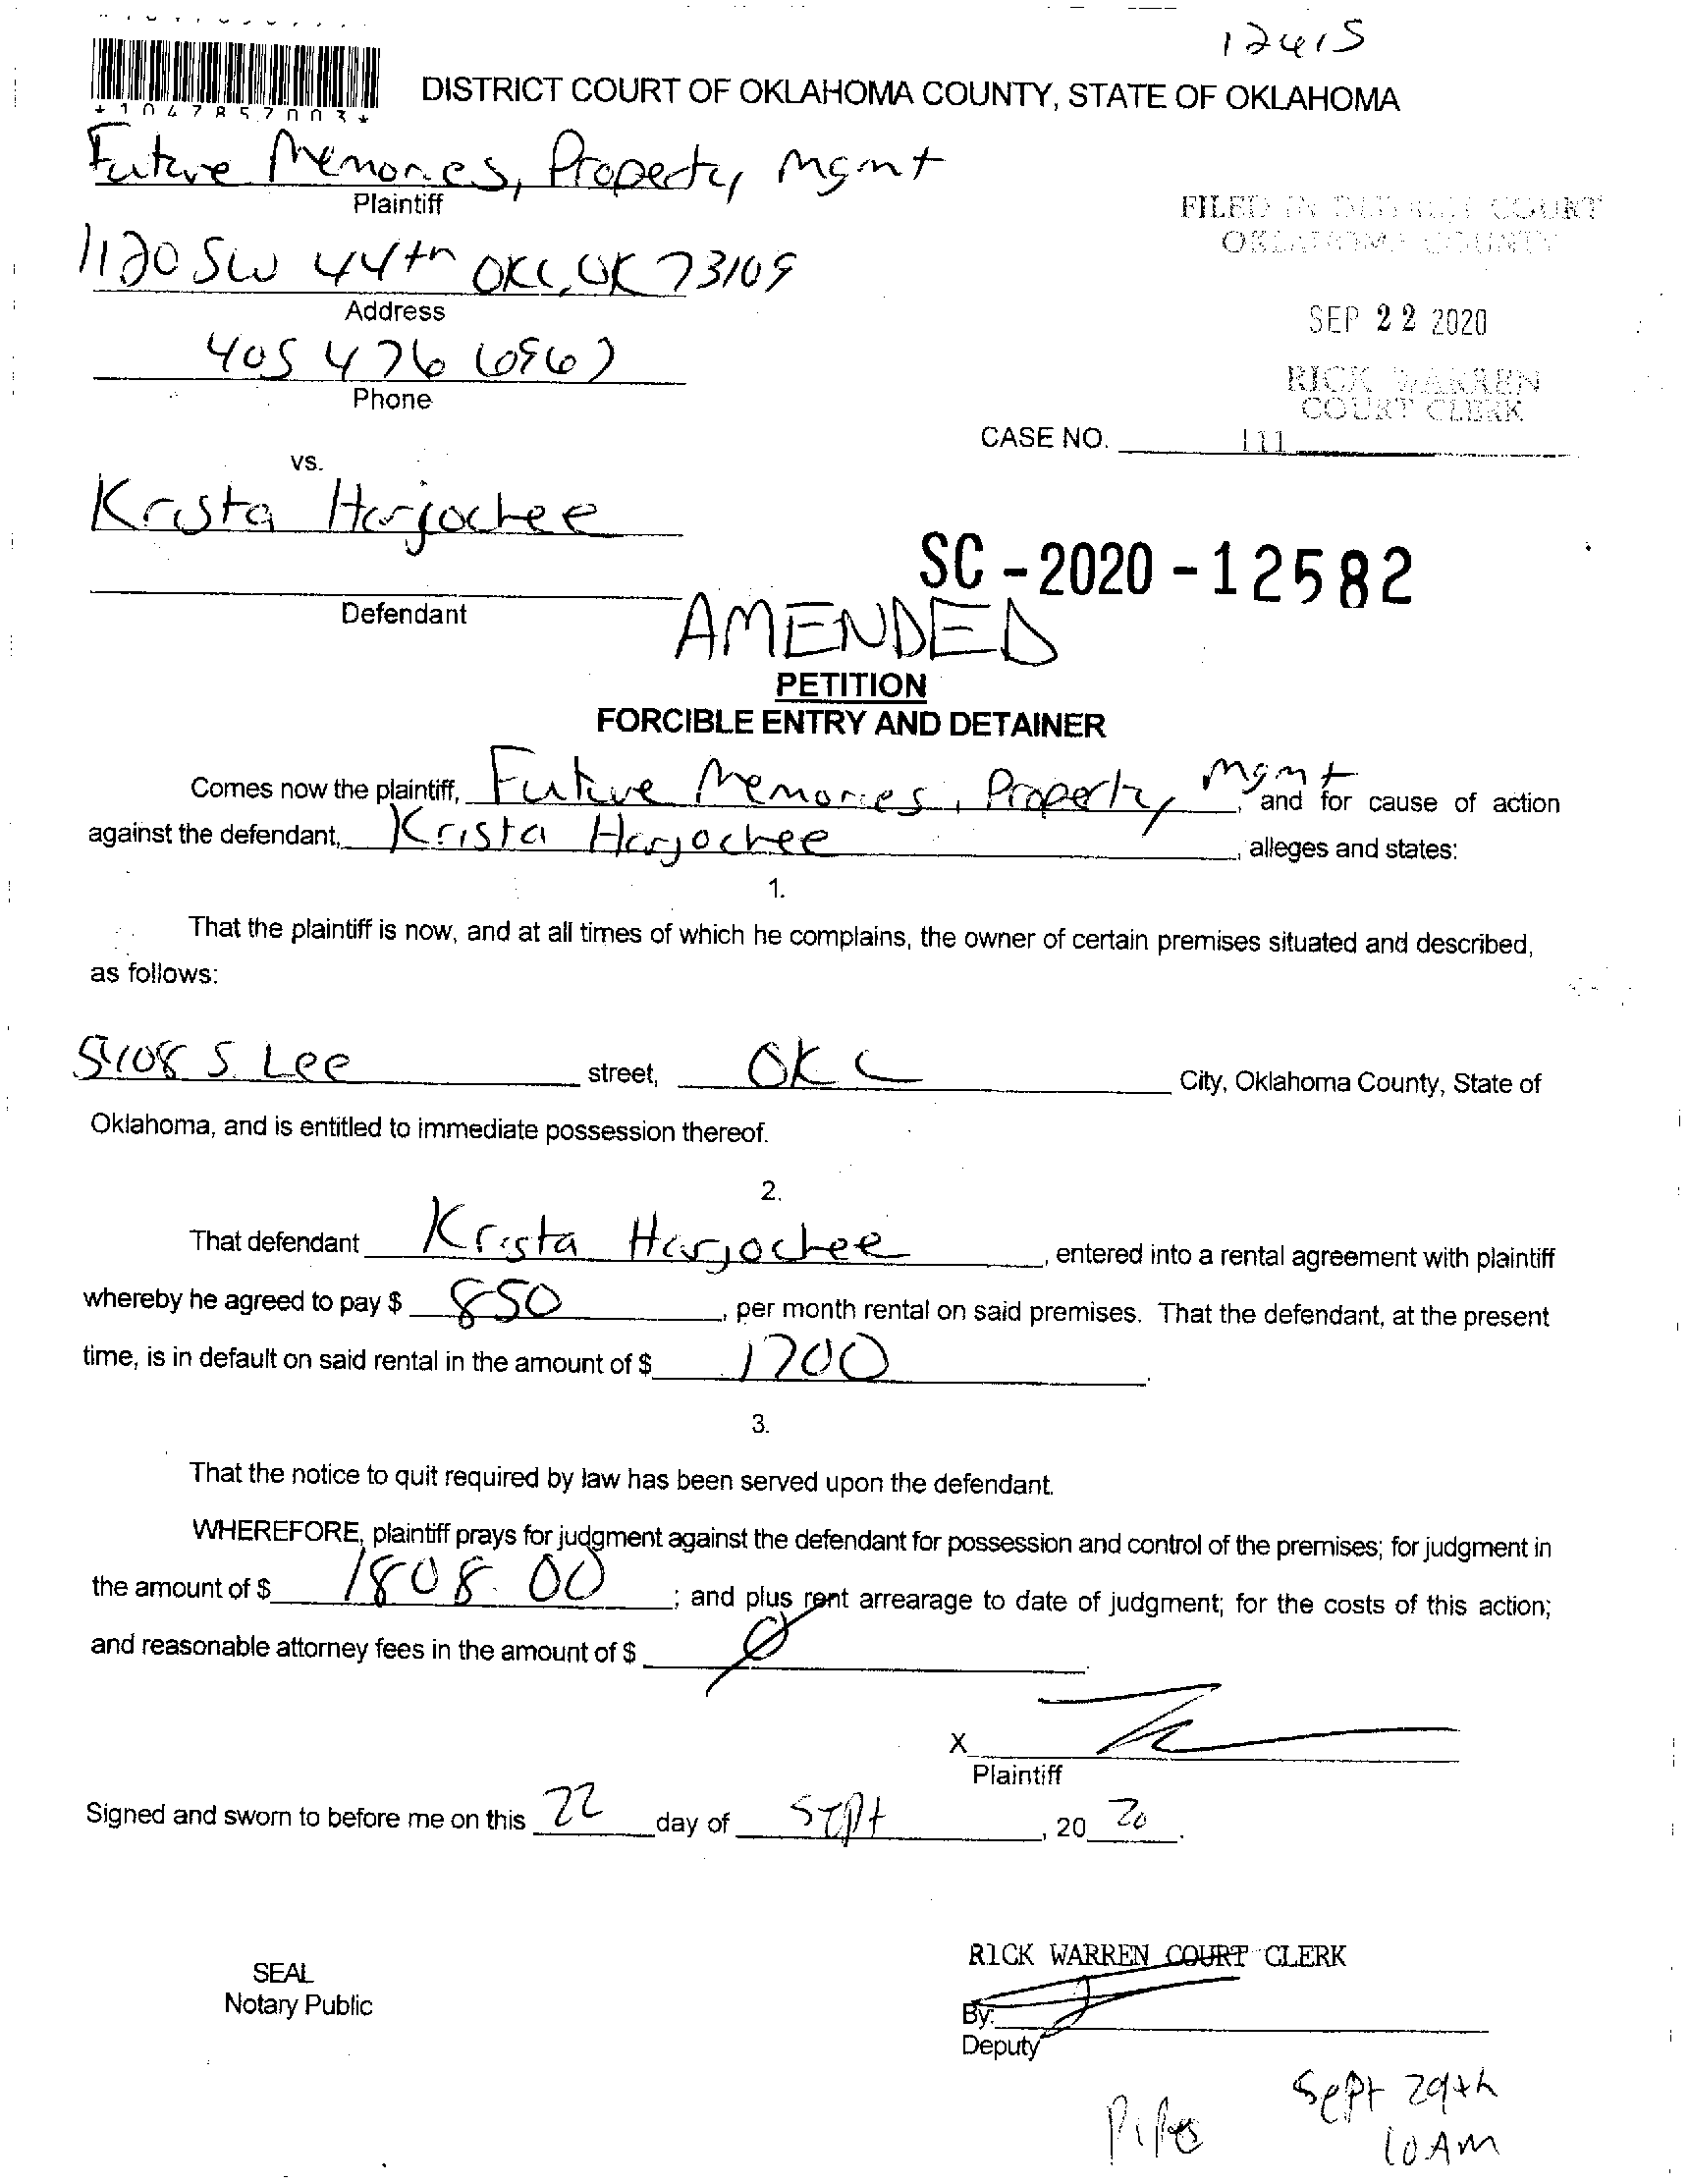 12415
*1047857003*
DISTRICT COURT OF OKLAHOMA COUNTY, STATE OF OKLAHOMA
Future Memories, Property Mgmt
Plaintiff
FILED IN DISTRICT COURT
OKLAHOMA COUNTY
1120 SW 44th OKC, OK 73109
Address
SEP 22 2020
405 476
Phone
RICK WARREN
COURT CLERK
CASE NO.
111
vs.
Krista Harjochee
SC-2020-12582
Defendant
AMENDED
PETITION
FORCIBLE ENTRY AND DETAINER
Comes now the plaintiff, Future Memories, Property Mgmt, and for cause of action
against the defendant, Krista Harjochee, alleges and states:
1.
That the plaintiff is now, and at all times of which he complains, the owner of certain premises situated and described,
as follows:
S. Lee street, OKC City, Oklahoma County, State of
Oklahoma, and is entitled to immediate possession thereof.
2.
That defendant Krista Harjochee, entered into a rental agreement with plaintiff
whereby he agreed to pay $ 850, per month rental on said premises. That the defendant, at the present
time, is in default on said rental in the amount of $ 1700.
3.
That the notice to quit required by law has been served upon the defendant.
WHEREFORE, plaintiff prays for judgment against the defendant for possession and control of the premises; for judgment in
the amount of $ 1808.00; and plus rent arrearage to date of judgment; for the costs of this action;
and reasonable attorney fees in the amount of $ Ø.
X
Plaintiff
Signed and sworn to before me on this 22 day of Sept, 20 20.
RICK WARREN COURT CLERK
SEAL
Notary Public
By:
Deputy
Sept 29th
10AM